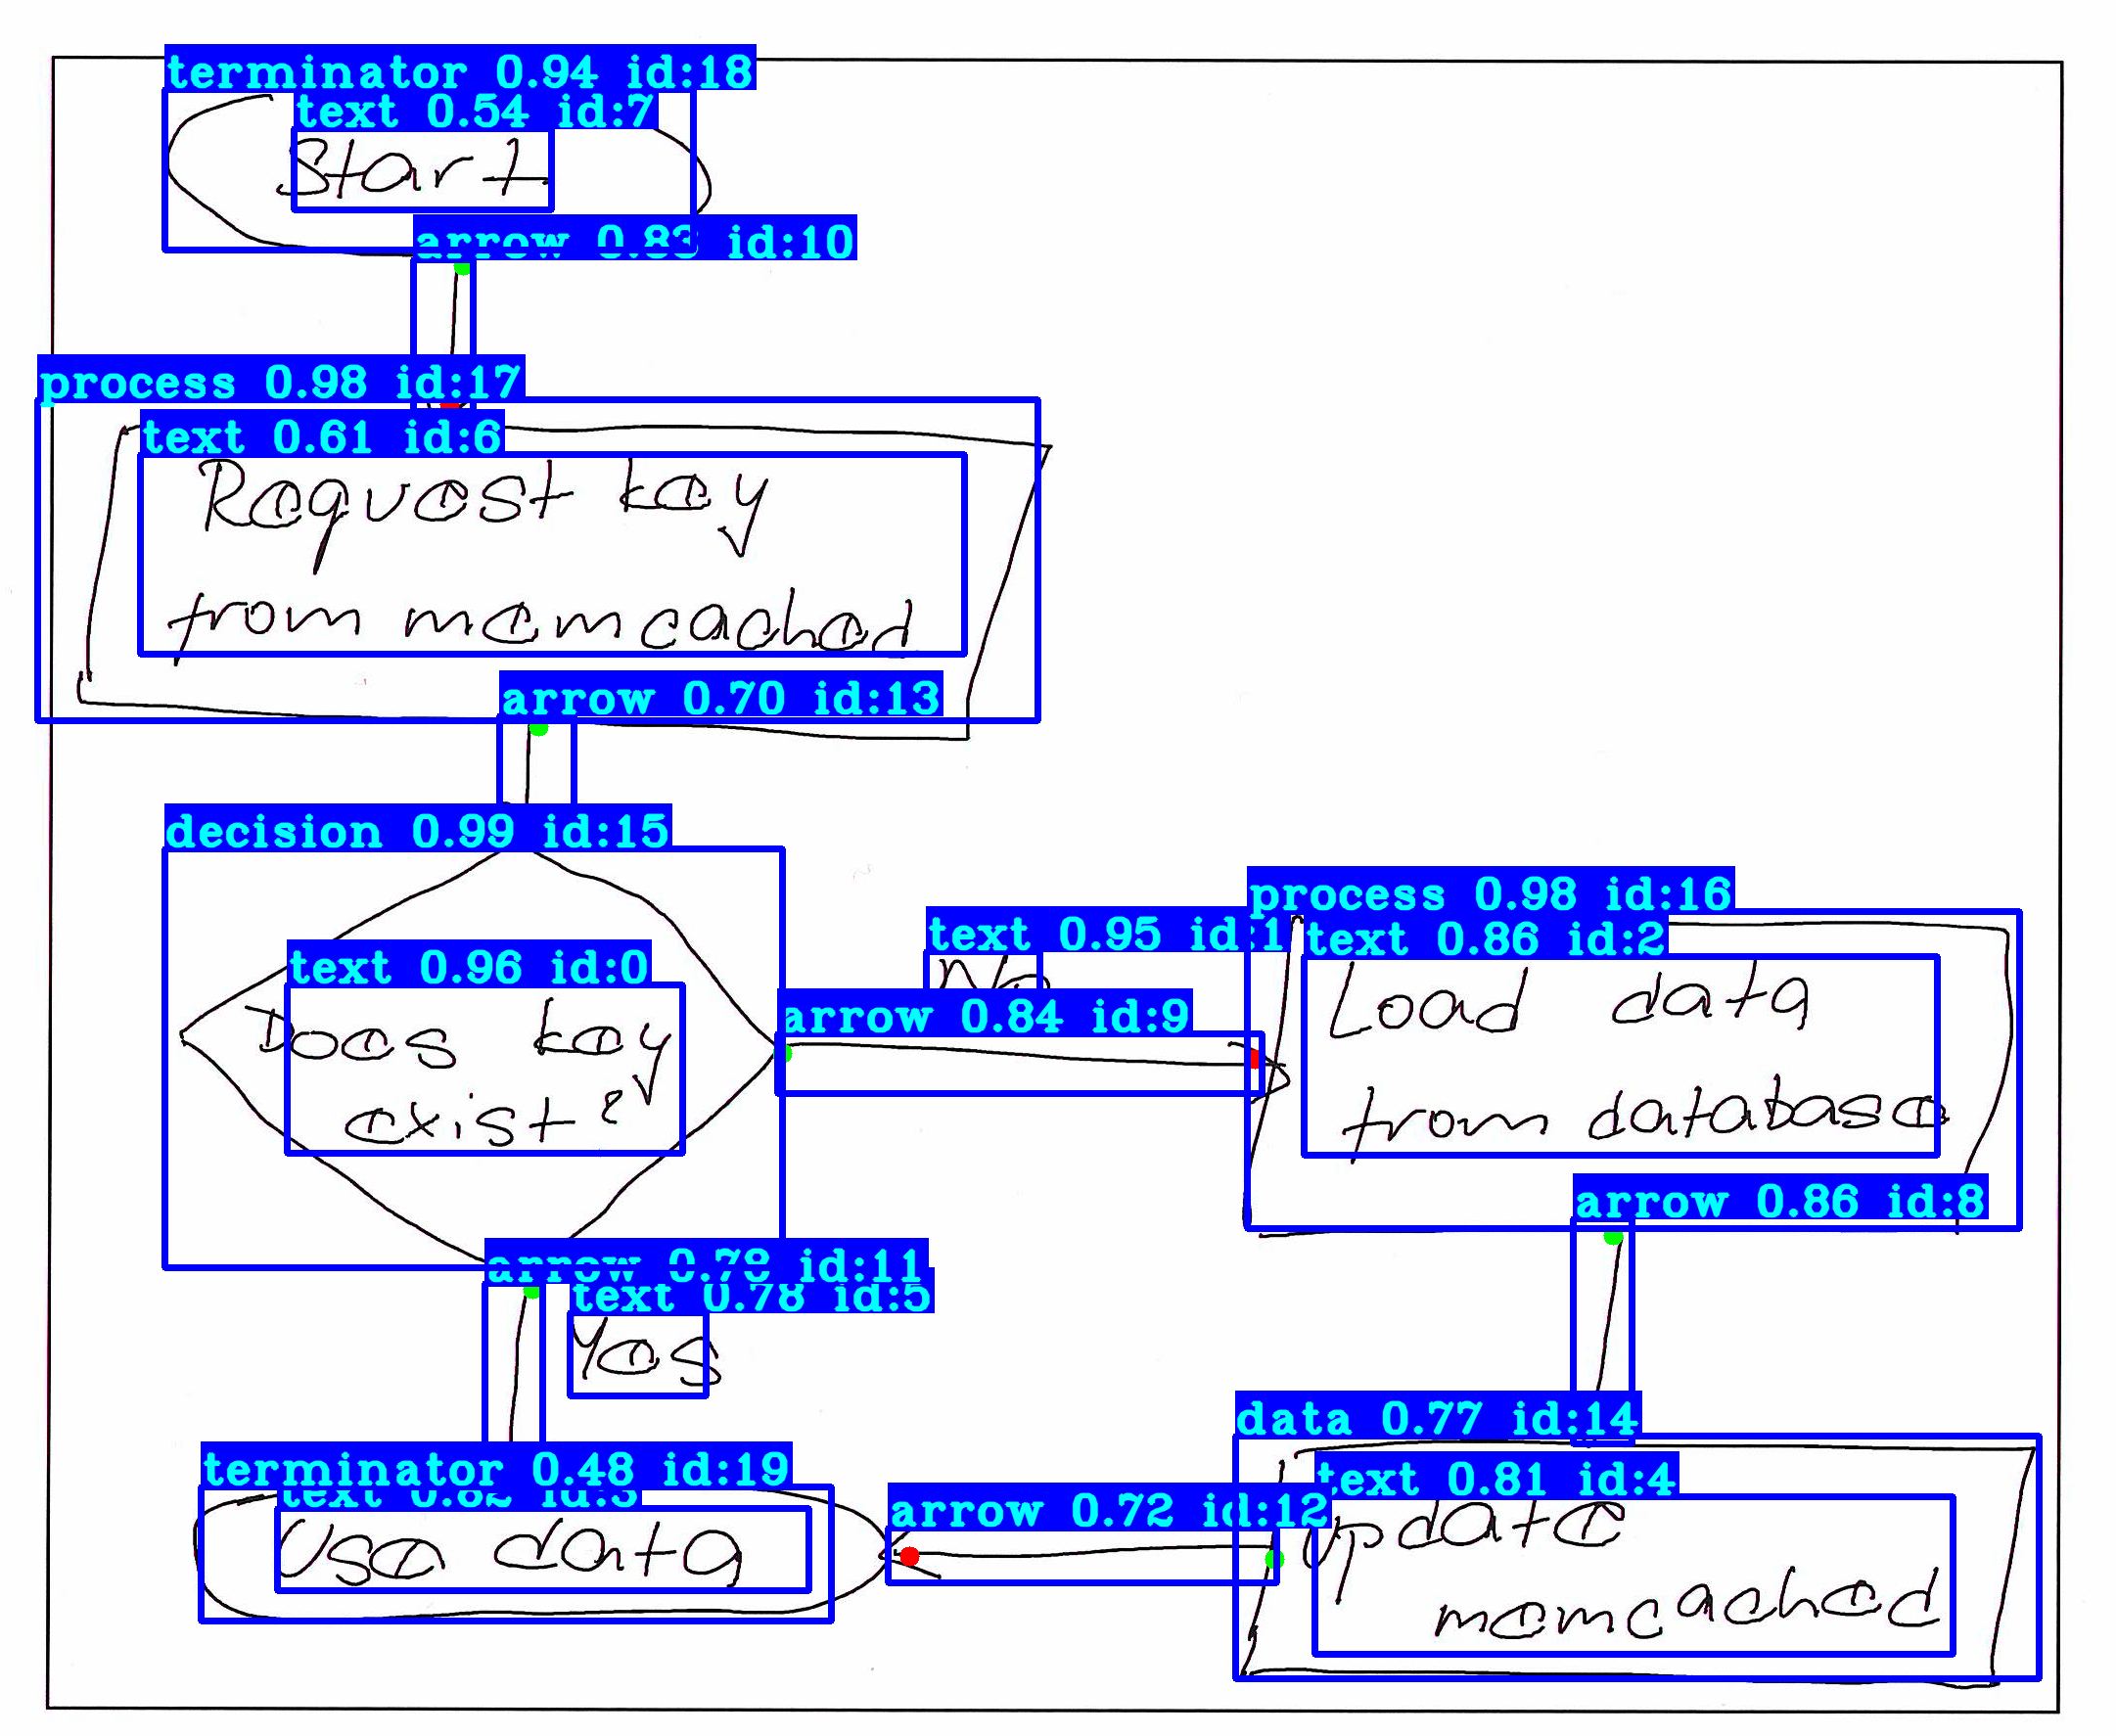 terminator 0.94 id:18
text 0.54 id:7
Start
arrow 0.83 id:10
process 0.98 id:17
text 0.61 id:6
Request key
from memcached
arrow 0.70 id:13
decision 0.99 id:15
text 0.96 id:0
Does key
exist?
text 0.95 id:1
No
arrow 0.84 id:9
process 0.98 id:16
text 0.86 id:2
Load data
from database
arrow 0.86 id:8
arrow 0.78 id:11
text 0.78 id:5
Yes
terminator 0.48 id:19
text 0.82 id:3
Use data
arrow 0.72 id:12
data 0.77 id:14
text 0.81 id:4
Update
memcached